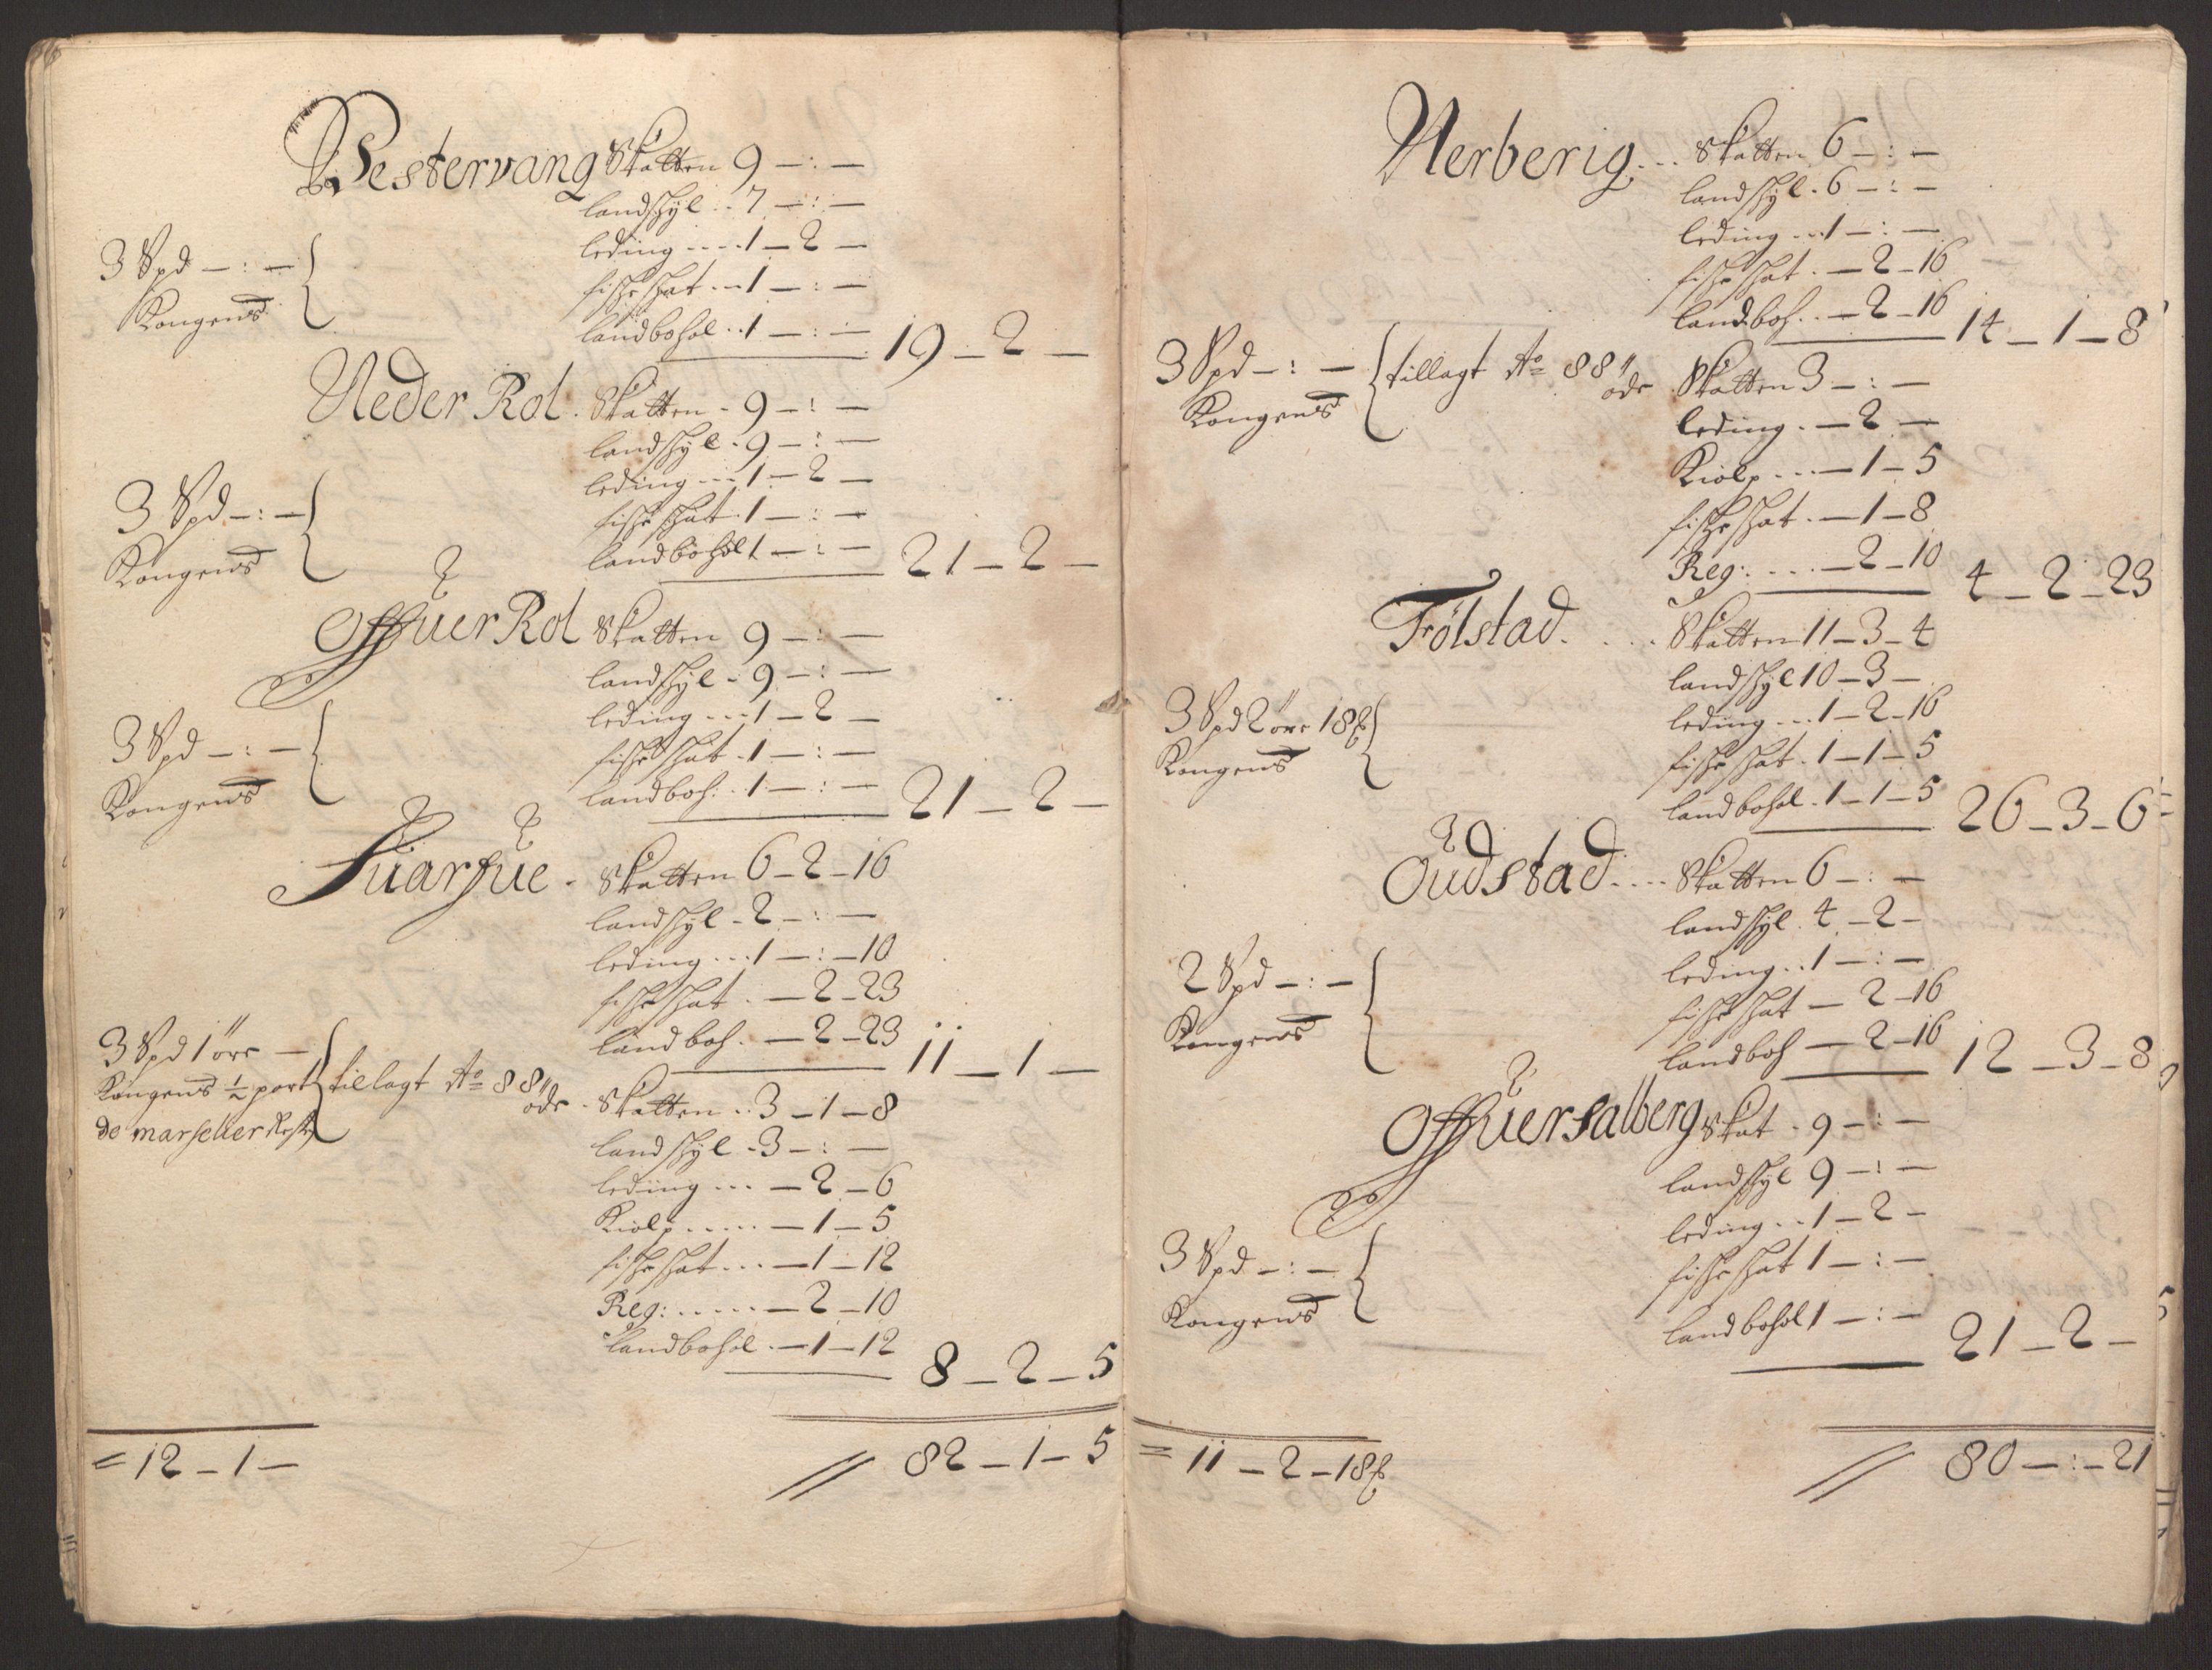 Vestervang Skatten 9 – : –
landskyl . . 7 – : –
leding . . . . 1 – 2 –
3 Spd – : –
fiskeskat . . 1 – : –
Kongens
landbohol . . 1 – : –
19 – 2 –
Neder Rol . Skatten - 9 – : –
landskyl - 9 – : –
leding . . . 1 – 2 –
3 Spd – : –
fiskeskat 1 – : –
Kongens
landbohol 1 – : –
21 – 2 –
Offuer Rol Skatten 9 – : –
landskyl - 9 – : –
leding . . . 1 – 2 –
3 Spd – : –
fiskeskat . 1 – : –
Kongens
landboh: . 1 – : –
21 – 2 –
Suarfue - Skatten 6 – 2 – 16
landskyl - 2 – : –
leding . . . 1 – : – 10
fiskeskat . – 2 – 23
3 Spd 1 øre –
landboh . – 2 – 23
11 – 1 –
Kongens ½ part tillagt Ao 88
øde - Skatten . . 3 – 1 – 8
de marselier Reste
landskyl - 3 – : –
leding . . . – 2 – 6
Kiølp . . . . . – 1 – 5
fiskeskat . . . – 1 – 12
Reg: . . . . . – 2 – 10
landbohol . – 1 – 12
8 – 2 – 5
= 12 – 1 –
// 82 – 1 – 5
Nerberig . . . Skatten 6 – : –
landskyl . 6 – : –
leding . . . 1 – : –
fiskeskat . – 2 – 16
landboh . . – 2 – 16
14 – 1 – 8
3 Spd – : – tillagt Ao 88
øde Skatten 3 – : –
Kongens
leding . – 2 –
Kiølp . . . – 1 – 5
fiskeskat . – 1 – 8
Reg: . . . . – 2 – 10
4 – 2 – 23
Følstad . . . . Skatten 11 – 3 – 4
landskyl 10 – 3 –
3 Spd 2 øre 18 ℔
leding . . . 1 – 2 – 16
Kongens
fiskeskat . 1 – 1 – 5
landbohol . 1 – 1 – 5
26 – 3 – 6
Oudstad . . . . Skatten 6 – : –
landskyl . 4 – 2 –
2 Spd – : –
leding . . 1 – : –
Kongens
fiskeskat – 2 – 16
landboh – 2 – 16
12 – 3 – 8
Offuersalberg Skat . 9 – : –
landskyl 9 – : –
leding . . 1 – 2 –
3 Spd – : –
fiskeskat 1 – : –
Kongens
landbohol 1 – : –
21 – 2 –
= 11 – 2 – 18 ℔
// 80 – : – 21